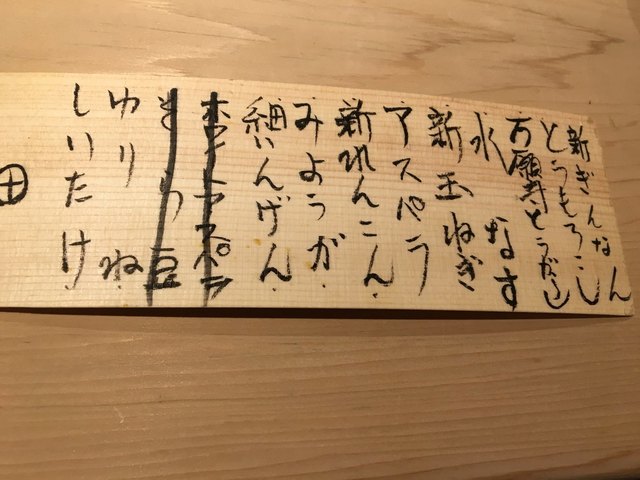 新ぎんなん
とうもろこし
万願寺とうがらし
水なす
新玉ねぎ
アスパラ
新れんこん
みょうが
細いんげん
ホワイトアスパラ
ゆりね
しいたけ
田